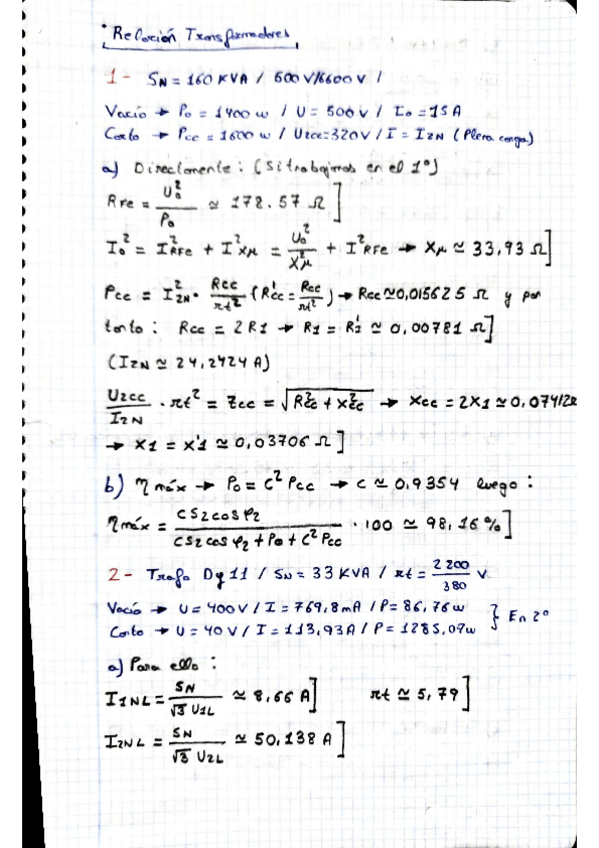 Relación Transformadores
1- SN = 160 KVA / 500 V/6600 V /
Vacío → P0 = 1400 w / U = 500 V / I0 = 15 A
Corto → Pcc = 1600 w / U2cc = 320 V / I = I2N (Plena carga)
a) Directamente: (Si trabajamos en el 1º)
RFe = U0² / P0 ≃ 178.57 Ω ]
I0² = I²RFe + I²Xμ = U0² / Xμ² + I²RFe → Xμ ≃ 33,93 Ω ]
Pcc = I²2N · Rcc / rt² (R'cc = Rcc / rt²) → Rcc ≃ 0,015625 Ω y por
tanto: Rcc = 2 R1 → R1 = R2' ≃ 0,00781 Ω ]
(I2N ≃ 24,2424 A)
U2cc / I2N · rt² = Zcc = √(R²cc + X²cc) → Xcc = 2X1 ≃ 0,07412Ω
→ X1 = X'1 ≃ 0,03706 Ω ]
b) η máx → P0 = C² Pcc → C ≃ 0,9354 luego:
η máx = C S2 cos φ2 / C S2 cos φ2 + P0 + C² Pcc · 100 ≃ 98,16 % ]
2- Trafo Dy11 / SN = 33 KVA / rt = 2200 / 380 V
Vacío → U = 400 V / I = 769,8 mA / P = 86,76 w } En 2º
Corto → U = 40 V / I = 113,93 A / P = 1285,07 w
a) Para ello:
I1NL = SN / √3 U1L ≃ 8,66 A ] rt ≃ 5,79 ]
I2NL = SN / √3 U2L ≃ 50,138 A ]